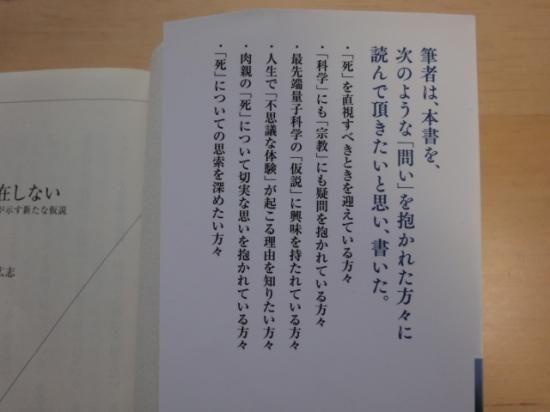 筆者は、本書を、
次のような「問い」を抱かれた方々に
読んで頂きたいと思い、書いた。
・「死」を直視すべきときを迎えている方々
・「科学」にも「宗教」にも疑問を抱かれている方々
・最先端量子科学の「仮説」に興味を持たれている方々
・人生で「不思議な体験」が起こる理由を知りたい方々
・肉親の「死」について切実な思いを抱かれている方々
・「死」についての思索を深めたい方々
在しない
が示す新たな仮説
広志